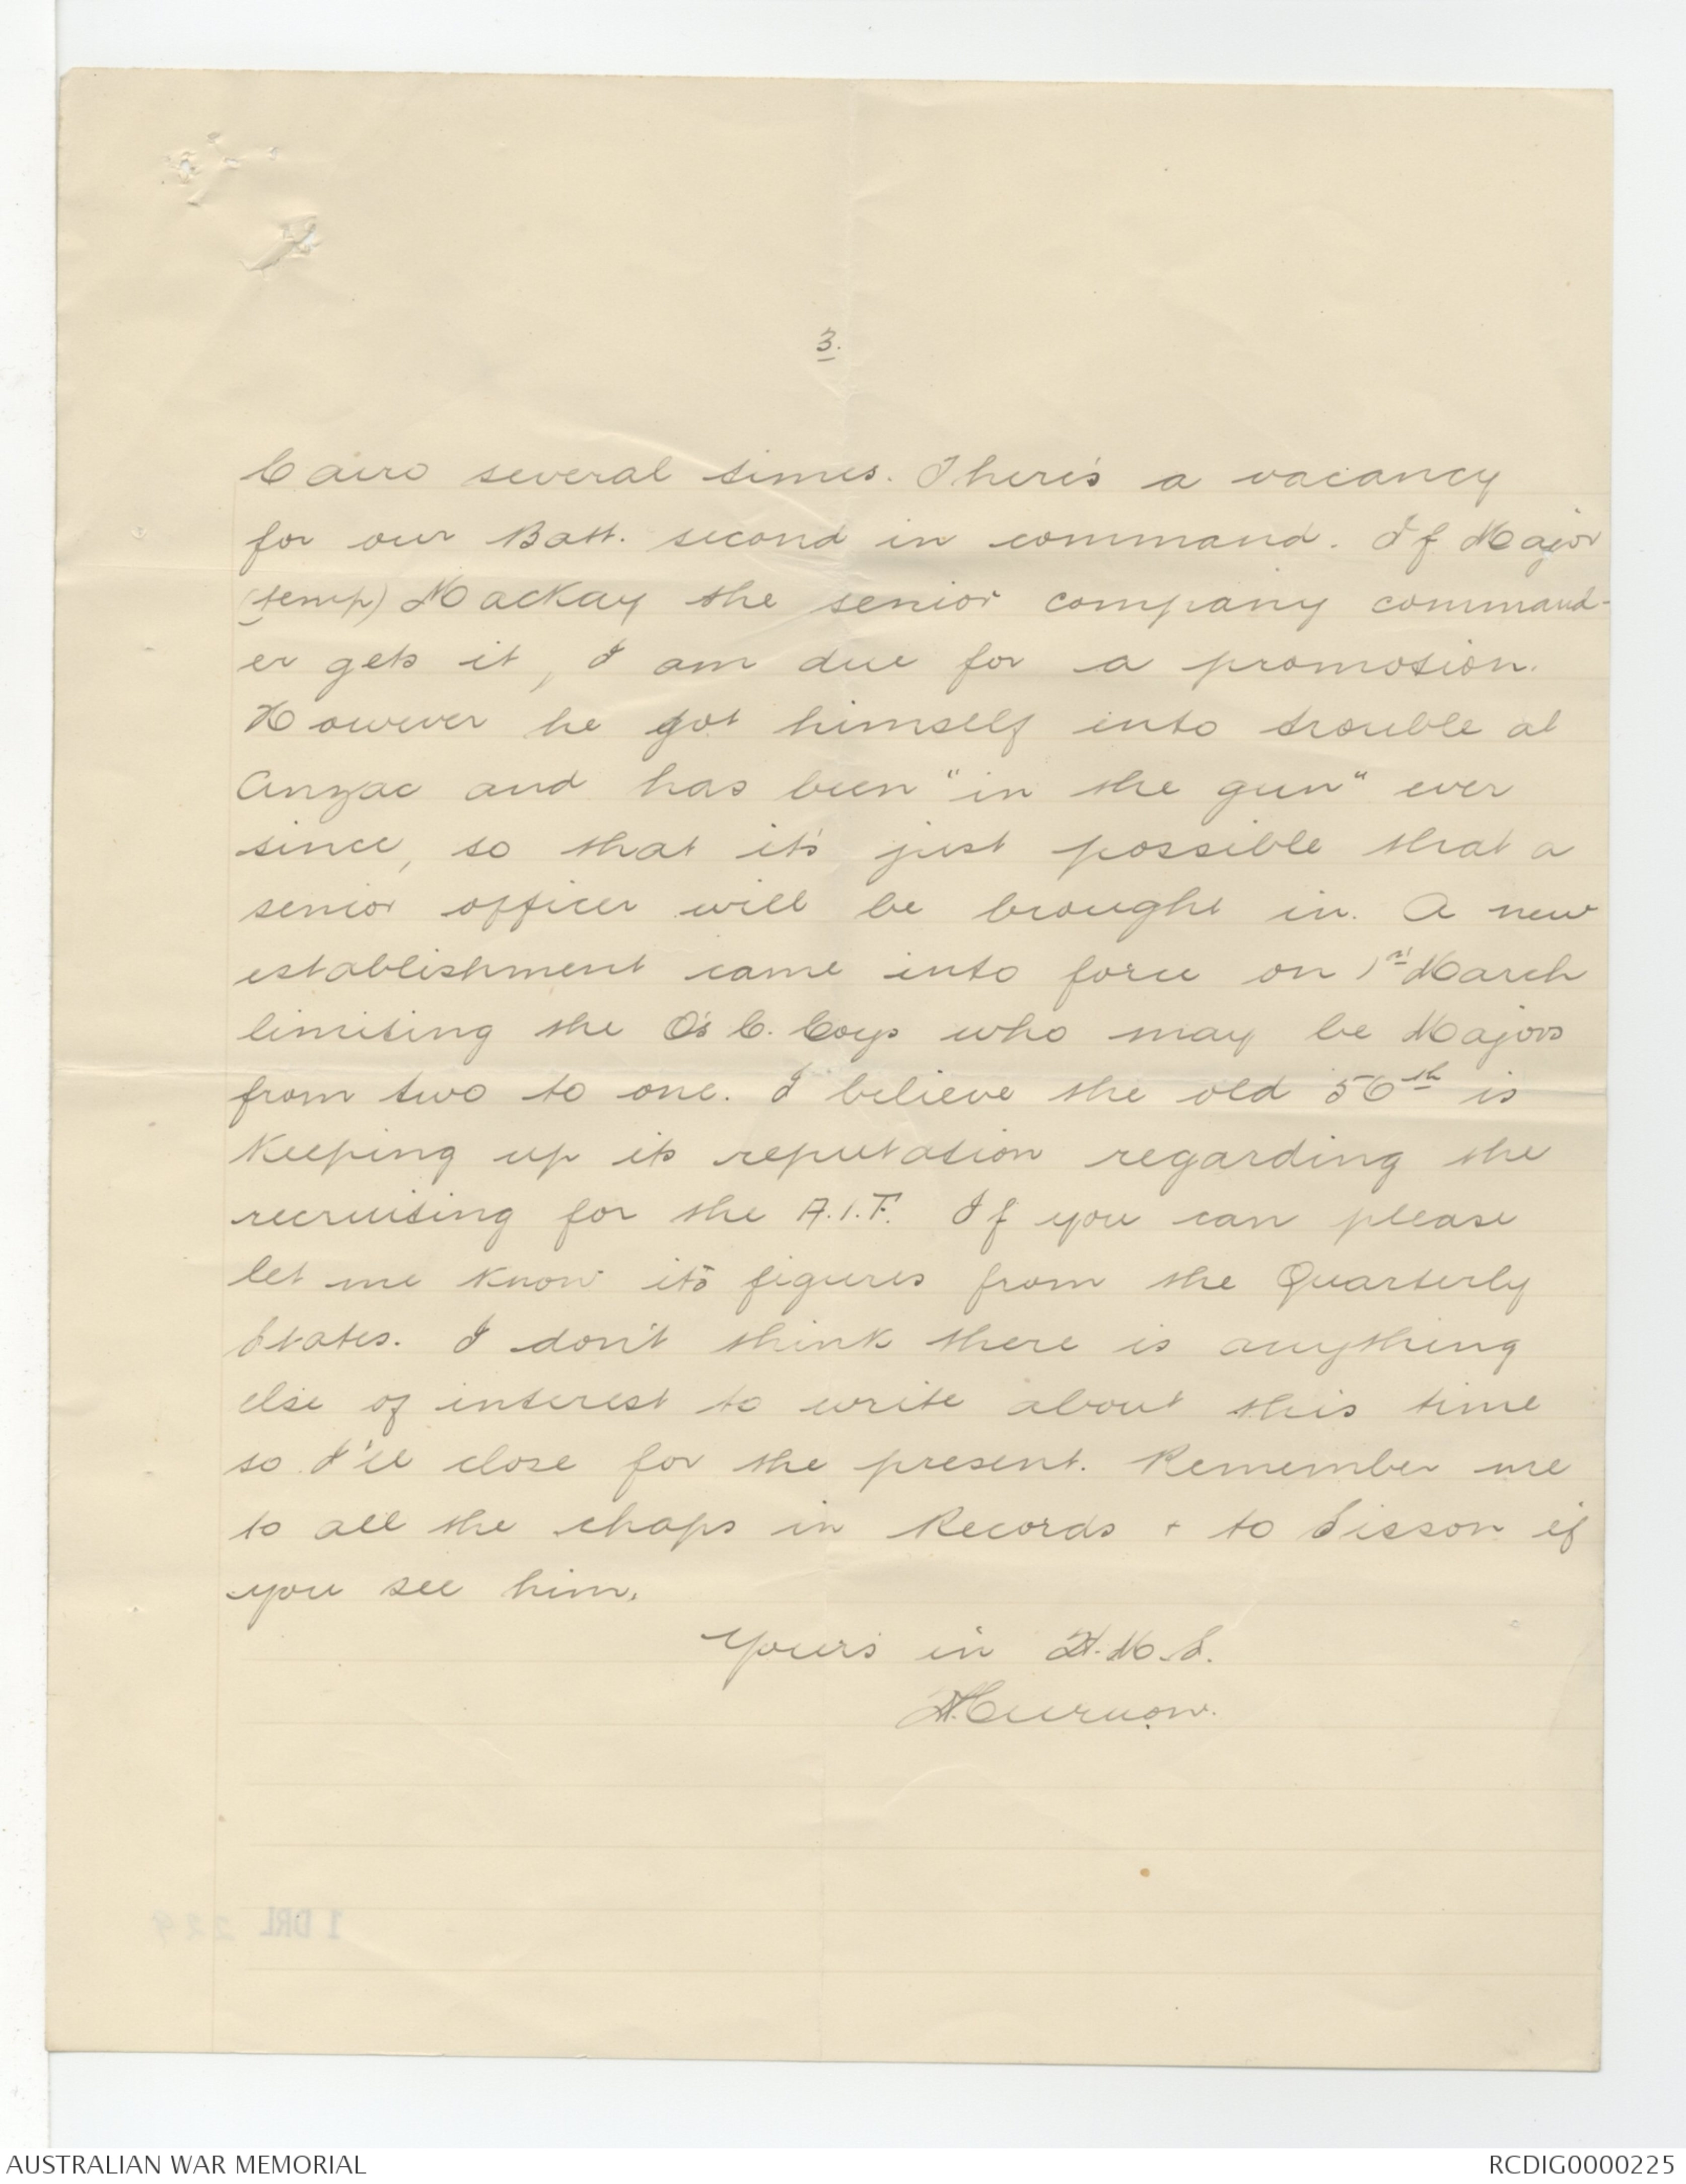 3.
Cairo several times. There's a vacancy
for our Batt. second in command. If Major
(temp) Mackay the senior company command-
er gets it, I am due for a promotion.
However he got himself into trouble at
Anzac and has been "in the gun" ever
since, so that it's just possible that a
senior officer will be brought in. A new
establishment came into force on 1st March
limiting the O's C. Coys who may be Majors
from two to one. I believe the old 56th is
keeping up its reputation regarding the
recruiting for the A.I.F. If you can please
let me know its figures from the Quarterly
States. I don't think there is anything
else of interest to write about this time
so I'll close for the present. Remember me
to all the chaps in Records + to Sisson if
you see him.
Yours in H.M.S.
Curnow.
1 DRL 229
AUSTRALIAN WAR MEMORIAL
RCDIG0000225